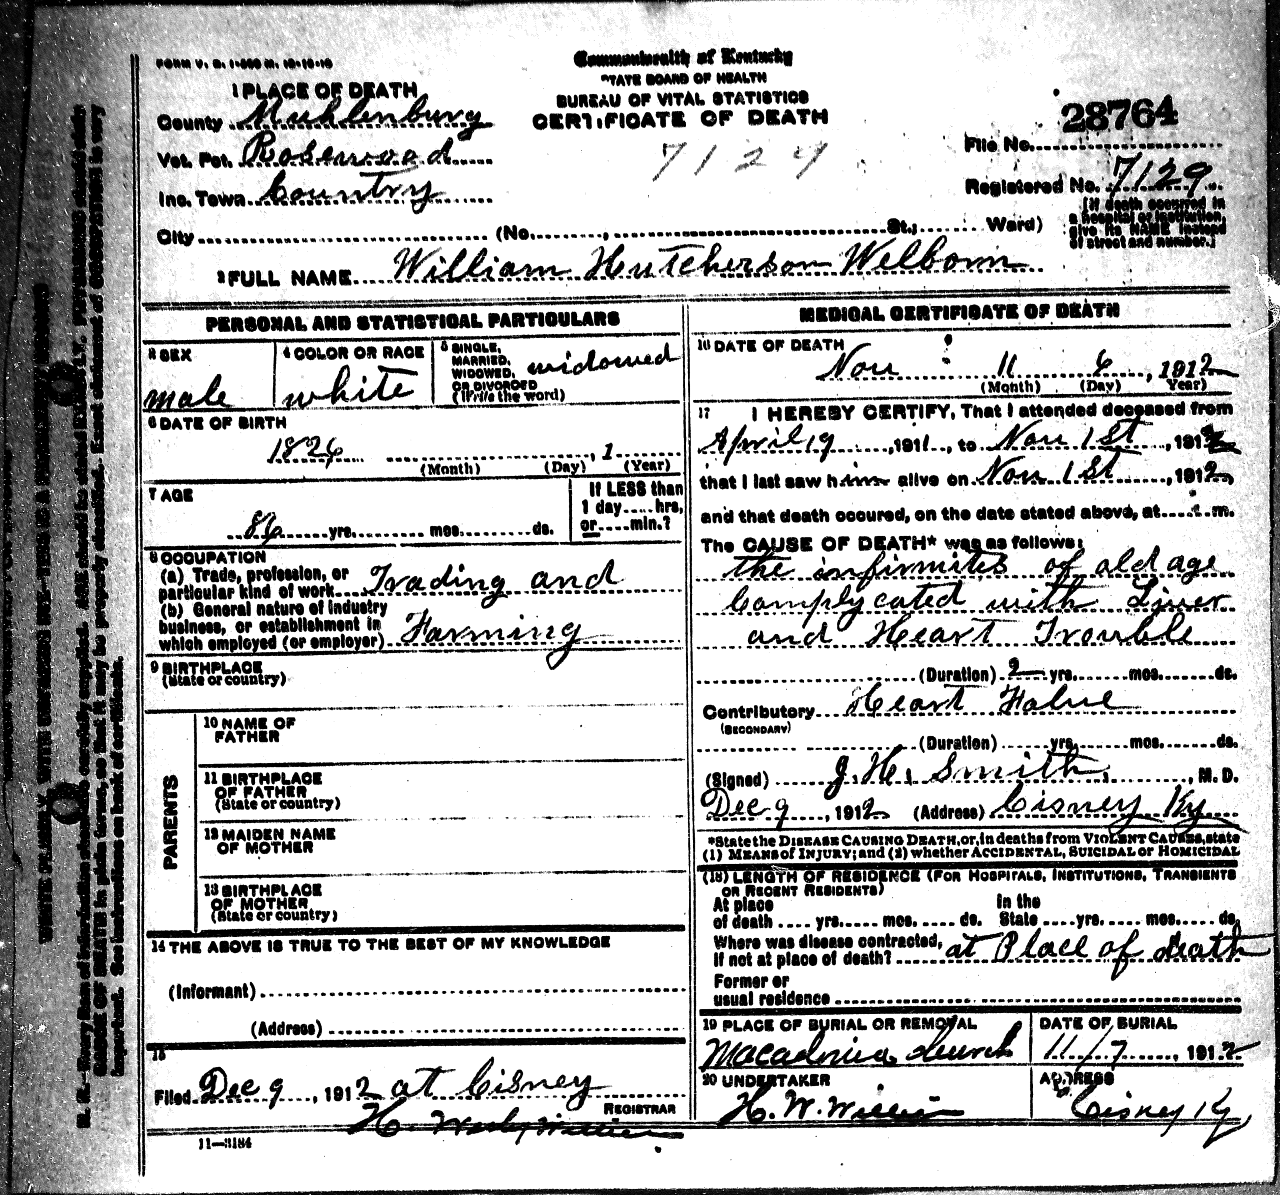 FORM V. S. 1-
Commonwealth of Kentucky
STATE BOARD OF HEALTH
BUREAU OF VITAL STATISTICS
CERTIFICATE OF DEATH
1 PLACE OF DEATH
County Muhlenburg
Vot. Pct. Rosewood
Inc. Town Country
City (No. , St., Ward)
7129
28764
File No.
Registered No. 7129
[If death occurred in
a hospital or institution,
give its NAME instead
of street and number.]
2 FULL NAME William Hutcherson Welborn
PERSONAL AND STATISTICAL PARTICULARS
3 SEX
male
4 COLOR OR RACE
white
5 SINGLE,
MARRIED,
WIDOWED,
OR DIVORCED
(Write the word)
widowed
6 DATE OF BIRTH
1826 , 1
(Month) (Day) (Year)
7 AGE
86 yrs. mos. ds.
If LESS than
1 day hrs,
or min.?
8 OCCUPATION
(a) Trade, profession, or
particular kind of work Trading and
(b) General nature of industry
business, or establishment in
which employed (or employer) Farming
9 BIRTHPLACE
(State or country)
PARENTS
10 NAME OF
FATHER
11 BIRTHPLACE
OF FATHER
(State or country)
12 MAIDEN NAME
OF MOTHER
13 BIRTHPLACE
OF MOTHER
(State or country)
14 THE ABOVE IS TRUE TO THE BEST OF MY KNOWLEDGE
(Informant)
(Address)
15
Filed Dec 9 , 1912 at Cisney
REGISTRAR
H.
11—3184
MEDICAL CERTIFICATE OF DEATH
16 DATE OF DEATH
Nov 11 6 , 1912
(Month) (Day) (Year)
17 I HEREBY CERTIFY, That I attended deceased from
April 19 , 1911 , to Nov 1st , 1912
that I last saw him alive on Nov 1st , 1912,
and that death occured, on the date stated above, at m.
The CAUSE OF DEATH* was as follows:
the infirmites of old age
Complycated with Liver
and Heart Trouble
(Duration) 2 yrs. mos. ds.
Contributory Heart Falue
(SECONDARY)
(Duration) yrs. mos. ds.
(Signed) J. H. Smith , M. D.
Dec 9 , 1912 (Address) Cisney Ky
*State the DISEASE CAUSING DEATH, or, in deaths from VIOLENT CAUSES, state
(1) MEANS of INJURY; and (2) whether ACCIDENTAL, SUICIDAL or HOMICIDAL
(18) LENGTH OF RESIDENCE (FOR HOSPITALS, INSTITUTIONS, TRANSIENTS
OR RECENT RESIDENTS)
At place In the
of death yrs. mos. ds. State yrs. mos. ds.
Where was disease contracted,
if not at place of death? at Place of death
Former or
usual residence
19 PLACE OF BURIAL OR REMOVAL
DATE OF BURIAL
church 11/7 , 1912
20 UNDERTAKER
ADDRESS
H. W. Cisney Ky
N. B.—Every item of information should be carefully supplied. AGE should be stated EXACTLY. PHYSICIANS should state
CAUSE OF DEATH in plain terms, so that it may be properly classified. Exact statement of OCCUPATION is very
important. See instructions on back of certificate.